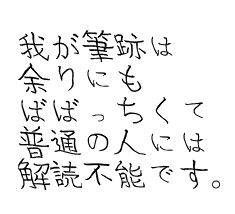 我が筆跡は
余りにも
ばばっちくて
普通の人には
解読不能です。